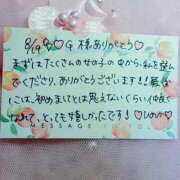 8/19 ♡G 様ありがとう♡
まずはたくさんの女の子の中から、私を選ん
でくださり、ありがとうございます!!
しこは、初めましてとは思えないくらい仲良く
なれて、とっても嬉しかったです!♡
MESSAGE FOR YOU